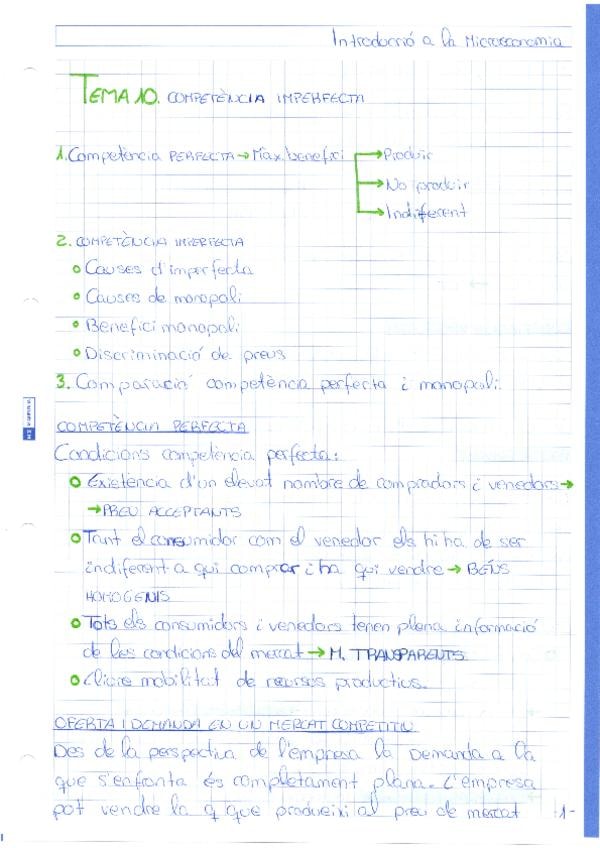 Introducció a la Microeconomia
TEMA 10. COMPETÈNCIA IMPERFECTA
1. Competència PERFECTA → Màx. benefici → Produir
→ No produir
→ Indiferent
2. COMPETÈNCIA IMPERFECTA
Causes d'imperfecta
Causes de monopoli
Benefici monopoli
Discriminació de preus
3. Comparació competència perfecta i monopoli.
COMPETÈNCIA PERFECTA
Condicions competència perfecta:
Existència d'un elevat nombre de compradors i venedors →
→ PREU ACCEPTANTS
Tant el consumidor com el venedor els hi ha de ser
indiferent a qui comprar i ha qui vendre → BÉNS
HOMOGENIS
Tots els consumidors i venedors tenen plena informació
de les condicions del mercat → M. TRANSPARENTS
Lliure mobilitat de recursos productius.
OFERTA I DEMANDA EN UN MERCAT COMPETITIU
Des de la perspectiva de l'empresa la Demanda a la
que s'enfronta és completament plana. L'empresa
pot vendre la q que produeixi al preu de mercat
-1-